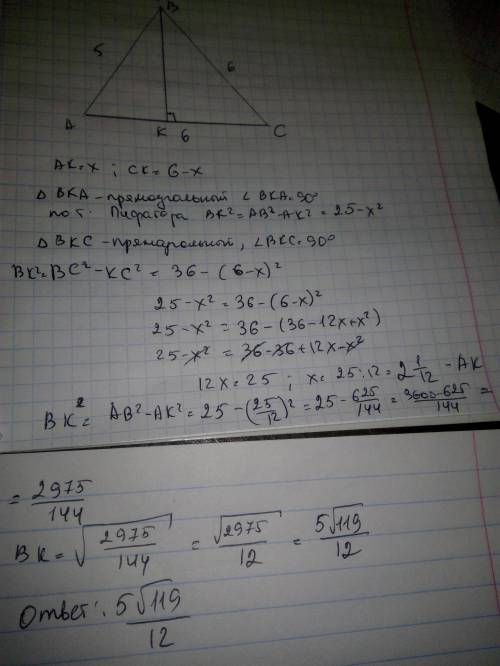 B
5
6
A
K
6
C
AK=x ; CK= 6-x
△ BKA - прямоугольный ∠ BKA=90°
по т. Пифагора BK²=AB²-AK² = 25-x²
△ BKC - прямоугольный, ∠BKC=90°
BK²=BC²-KC² = 36-(6-x)²
25-x² = 36-(6-x)²
25-x² = 36-(36-12x+x²)
25-x² = 36-36+12x-x²
12x=25 ; x= 25:12 = 2 1/12 - AK
BK² = AB²-AK² = 25-(25/12)² = 25- 625/144 = 3600-625/144 =
= 2975/144
BK = √2975/144 = √2975/12 = 5√119/12
Ответ: 5√119/12